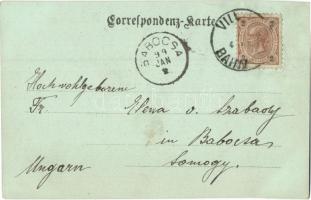 Correspondenz-Karte
BABOCSA
99
JAN
2
VILL
BAHN
Hochwohlgeborene
Fr. Elena v. Szabady
in Babocsa
Ungarn Somogy.